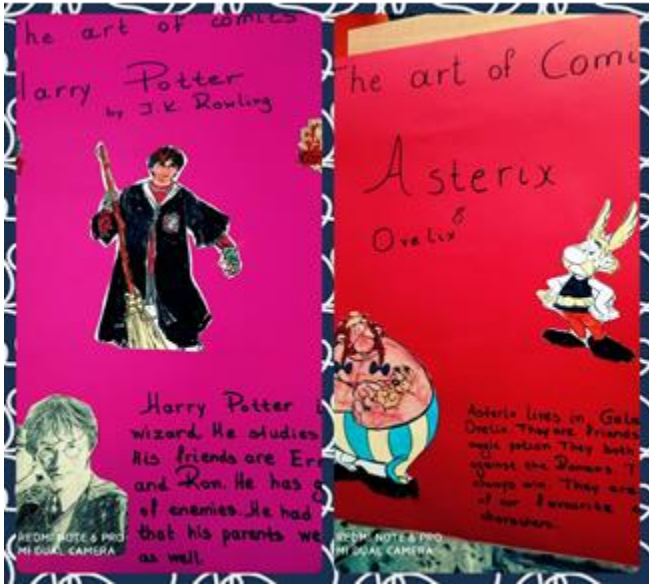 he art of comics
arry Potter
by J.K. Rowling
Harry Potter
wizard. He studies
His friends are Er
and Ron. He has g
of enemies. He had
that his parents we
as well.
REDMI NOTE 6 PRO
MI DUAL CAMERA
The art of Comi
Asterix
&
Orelix
Asterix lives in
Orelix. They are friends
magic potion They both
against the Romans T
always win. They are
of our favourite
characters.
REDMI NOTE 6 PRO
MI DUAL CAMERA